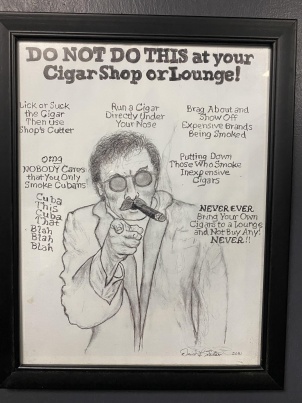 DO NOT DO THIS at your
Cigar Shop or Lounge!
Lick or Suck
the Cigar
Then use
Shop's Cutter
Run a Cigar
Directly Under
Your Nose
Brag About and
Show Off
Expensive Brands
Being Smoked
omg
NOBODY Cares
that You Only
Smoke Cubans!
Cuba
This
Cuba
That
Blah
Blah
Blah
Putting Down
Those Who Smoke
Inexpensive
Cigars
NEVER EVER
Bring Your Own
Cigars to a Lounge
and Not Buy Any!
NEVER!!